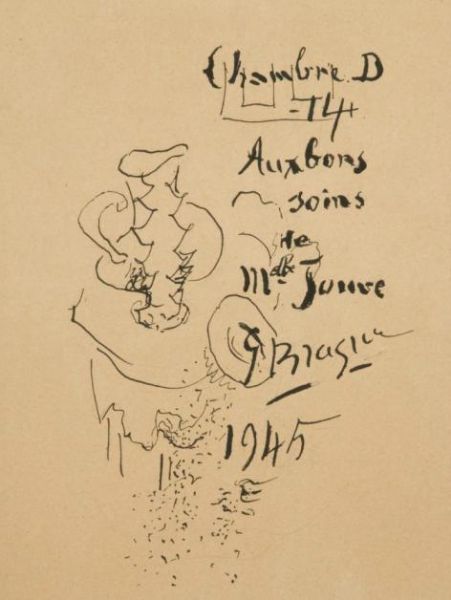 Chambre D
-T4
Aux bons
soins
de
Mdlle Jouve
G Braque
1945